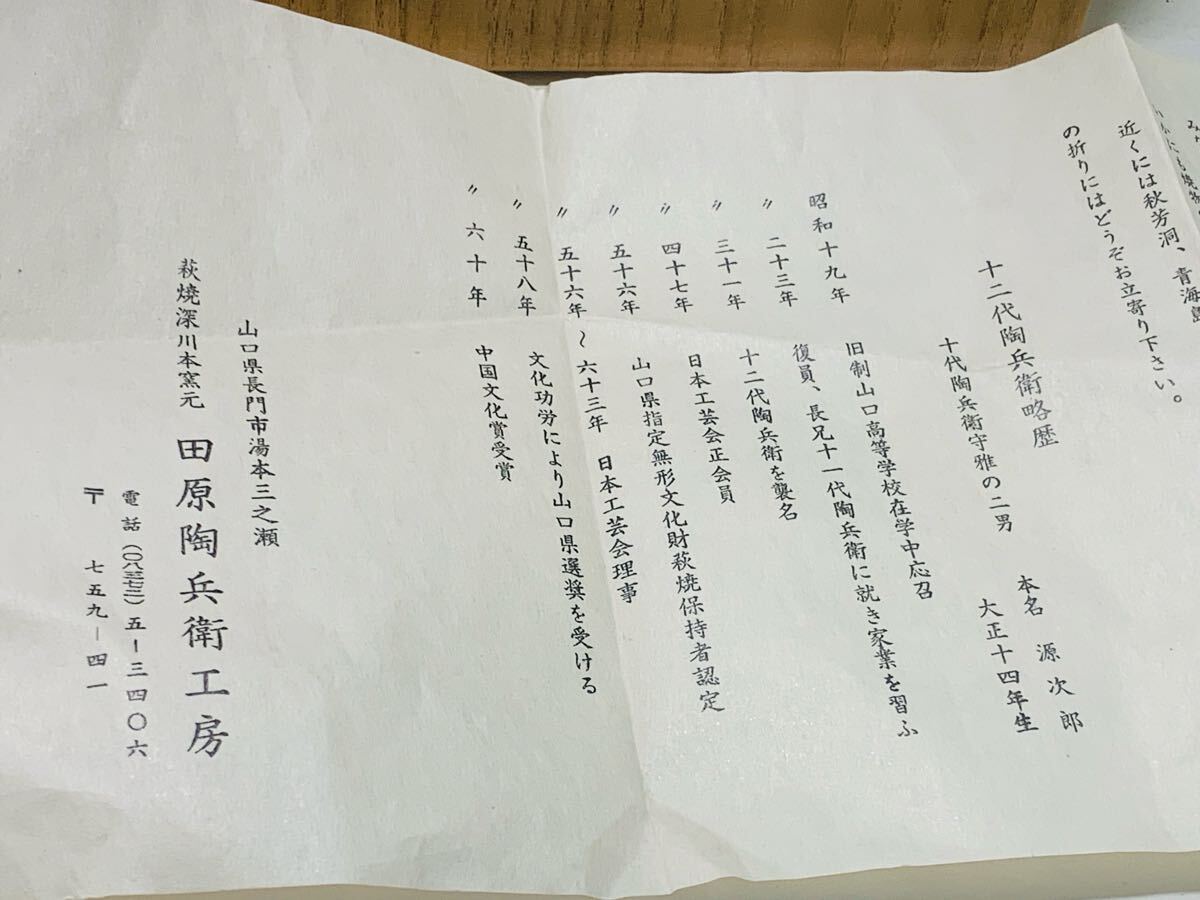 近くには秋芳洞、青海島
の折りにはどうぞお立寄り下さい。
十二代陶兵衛略歴
本名 源次郎
十代陶兵衛守雅の二男 大正十四年生
昭和十九年 旧制山口高等学校在学中応召
〃 二十三年 復員、長兄十一代陶兵衛に就き家業を習ふ
〃 三十一年 十二代陶兵衛を襲名
〃 四十七年 日本工芸会正会員
〃 五十六年 山口県指定無形文化財萩焼保持者認定
〃 五十六年〜六十三年 日本工芸会理事
〃 五十八年 文化功労により山口県選奨を受ける
〃 六十年 中国文化賞受賞
山口県長門市湯本三之瀬
萩焼深川本窯元 田原陶兵衛工房
電話(〇八三七三)五-三四〇六
〒 七五九-四一